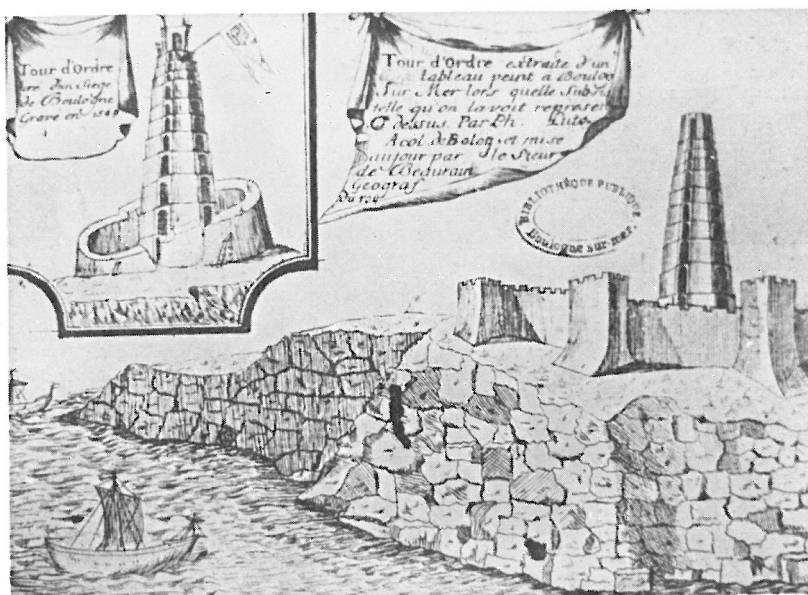 Tour d'Ordre
de Boulogne
Gravé en 1549
Tour d'Ordre extraite d'un
tableau peint a Boulog
Sur Mer lors quelle Subsis
telle qu'on la voit represen
dessus. Par Ph. Luto
Acol. de Bolog et mise
aujour par le Sieur
de Beaurain
Geograf
Du roy
BIBLIOTHÈQUE PUBLIQUE
Boulogne sur-mer.